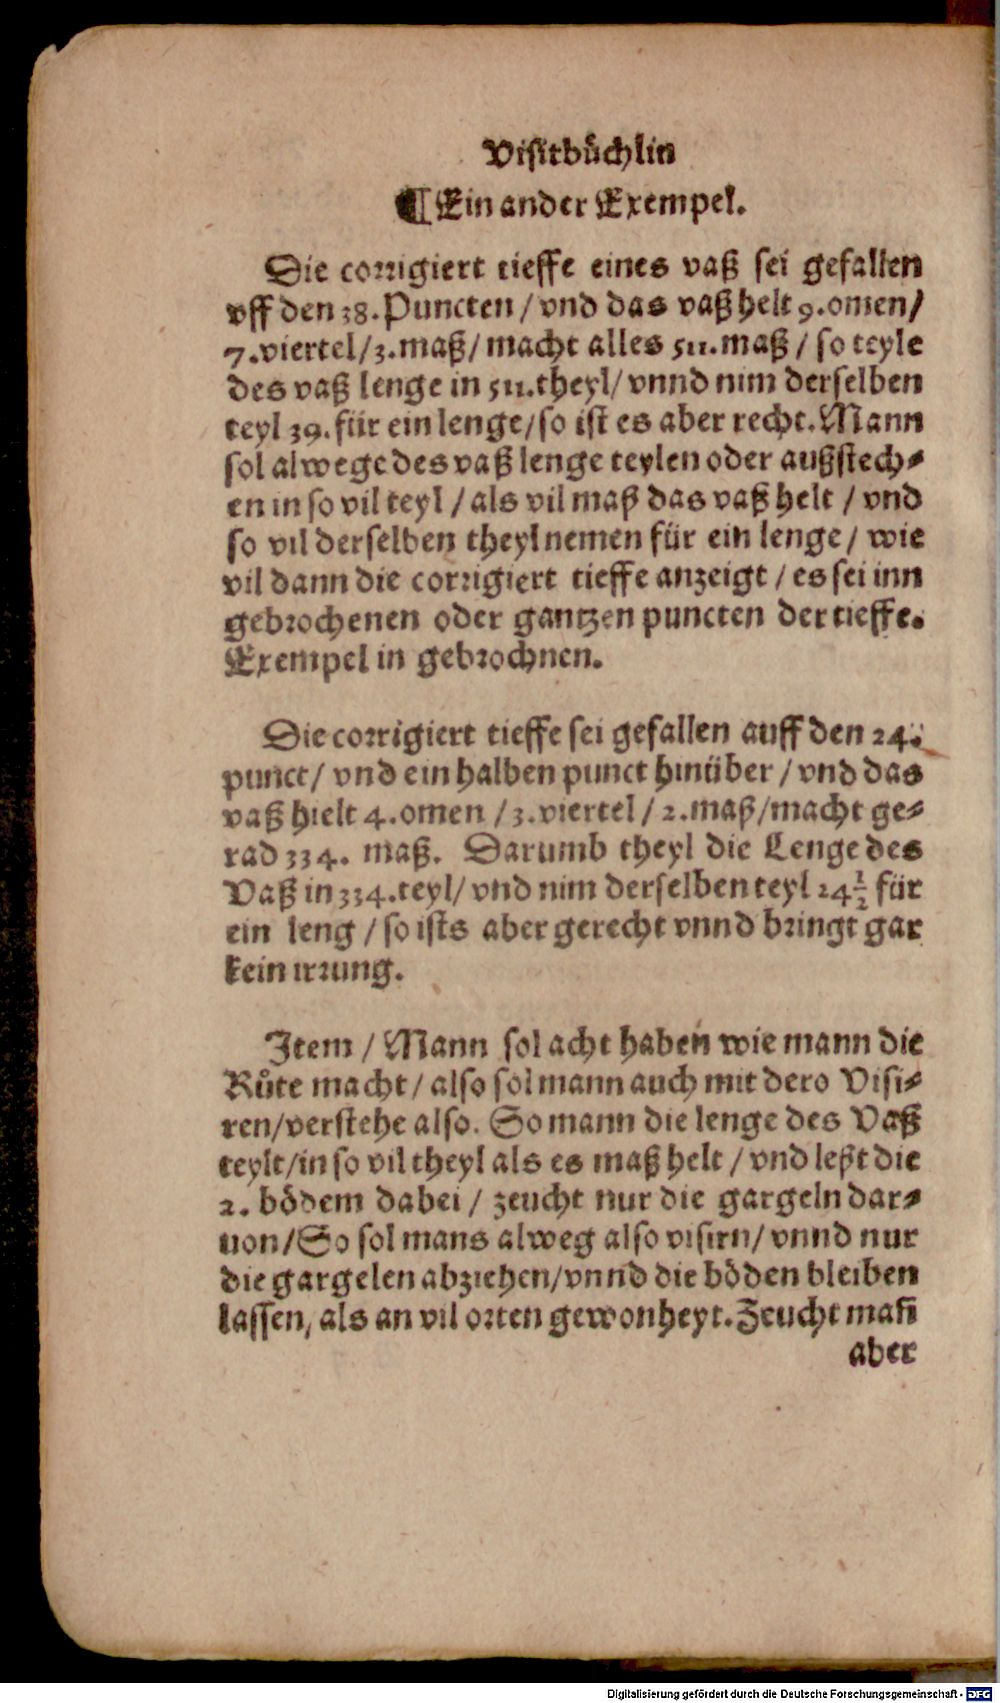 Visitbuͤchlin
¶ Ein ander Exempel.
Die corrigiert tieffe eines vaß sei gefallen
vff den 38. Puncten / vnd das vaß helt 9. omen /
7. viertel / 3. maß / macht alles 511. maß / so teyle
des vaß lenge in 511. theyl / vnnd nim derselben
teyl 39. für ein lenge / so ist es aber recht. Mann
sol alwege des vaß lenge teylen oder außstech⸗
en in so vil teyl / als vil maß das vaß helt / vnd
so vil derselben theyl nemen für ein lenge / wie
vil dann die corrigiert tieffe anzeigt / es sei inn
gebrochenen oder gantzen puncten der tieffe.
Exempel in gebrochnen.
Die corrigiert tieffe sei gefallen auff den 24.
punct / vnd ein halben punct hinüber / vnd das
vaß hielt 4. omen / 3. viertel / 2. maß / macht ge⸗
rad 334. maß. Darumb theyl die Lenge des
Vaß in 334. teyl / vnd nim derselben teyl 24 1/2 für
ein leng / so ists aber gerecht vnnd bringt gar
kein irrung.
Item / Mann sol acht haben wie mann die
Ruͦte macht / also sol mann auch mit dero Visi⸗
ren / verstehe also. So mann die lenge des Vaß
teylt / in so vil theyl als es maß helt / vnd leßt die
2. boͤdem dabei / zeucht nur die gargeln dar⸗
uon / So sol mans alweg also visirn / vnnd nur
die gargelen abziehen / vnnd die boͤden bleiben
lassen, als an vil orten gewonheyt. Zeucht mañ
aber
Digitalisierung gefördert durch die Deutsche Forschungsgemeinschaft - DFG